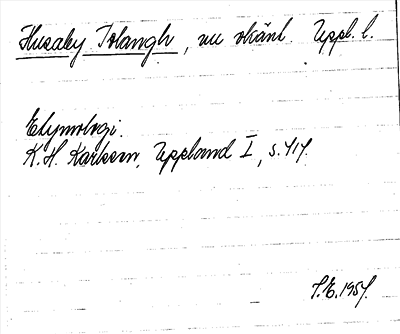 Husaby Tolangh, nu okänt. Uppl. l.
Etymologi.
K. H. Karlsson, Uppland I, s. 417.
S.E. 1957.